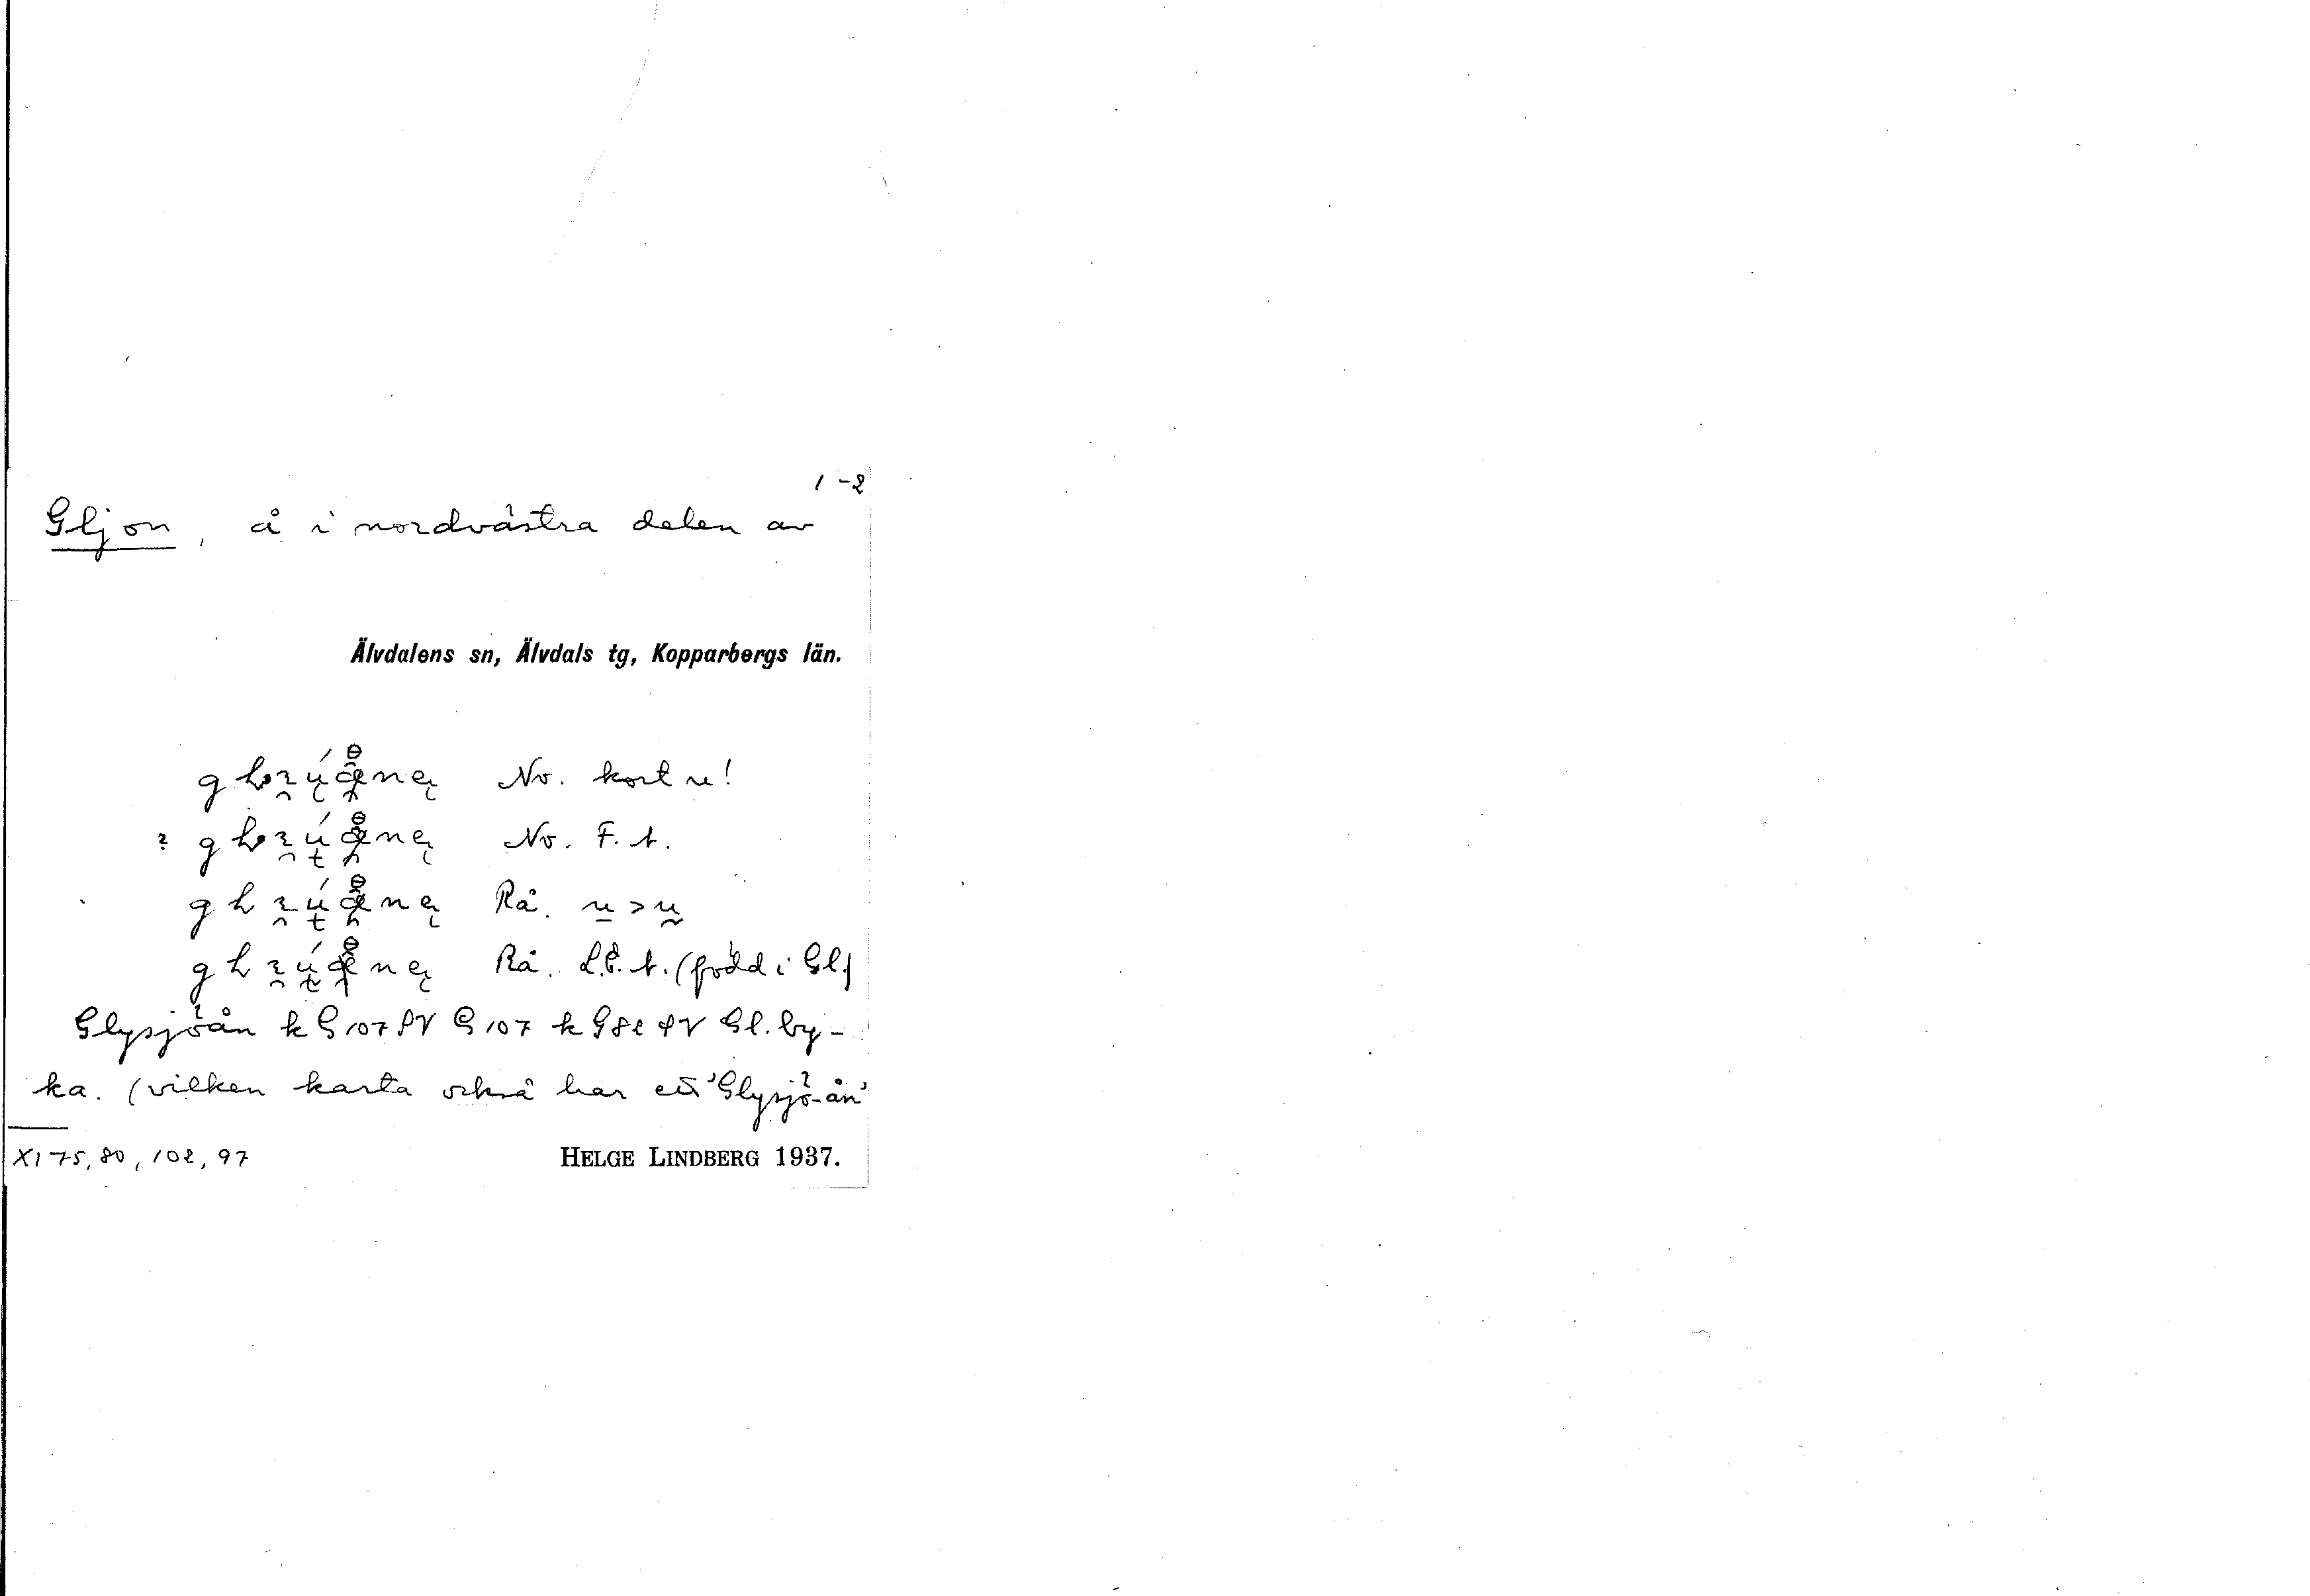 1-2
Gljon, å i nordvästra delen av
Älvdalens sn, Älvdals tg, Kopparbergs län.
No. kort u!
No. F. t.
Rå. u > u
Rå. L.E. t. (född i Gl.)
Glysjöån k G 107 SV G 107 k G 82 SV Gl. by-
ka. (vilken karta också har ett 'Glysjö-ån'
XI 75, 80, 102, 97
HELGE LINDBERG 1937.